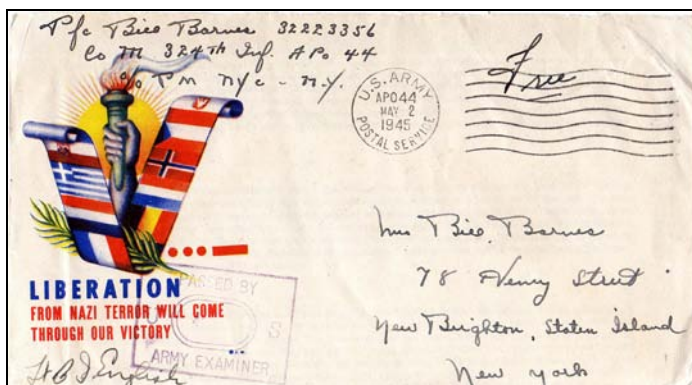 Pfc Bill Barnes 32223356
Co M 324th Inf. APO 44
c/o PM NYC - N.Y.
U.S. ARMY
APO 44
MAY 2
1945
POSTAL SERVICE
Free
Mrs Bill Barnes
78 Henry Street
New Brighton, Staten Island
New York
LIBERATION
FROM NAZI TERROR WILL COME
THROUGH OUR VICTORY
PASSED BY
S
ARMY EXAMINER
English